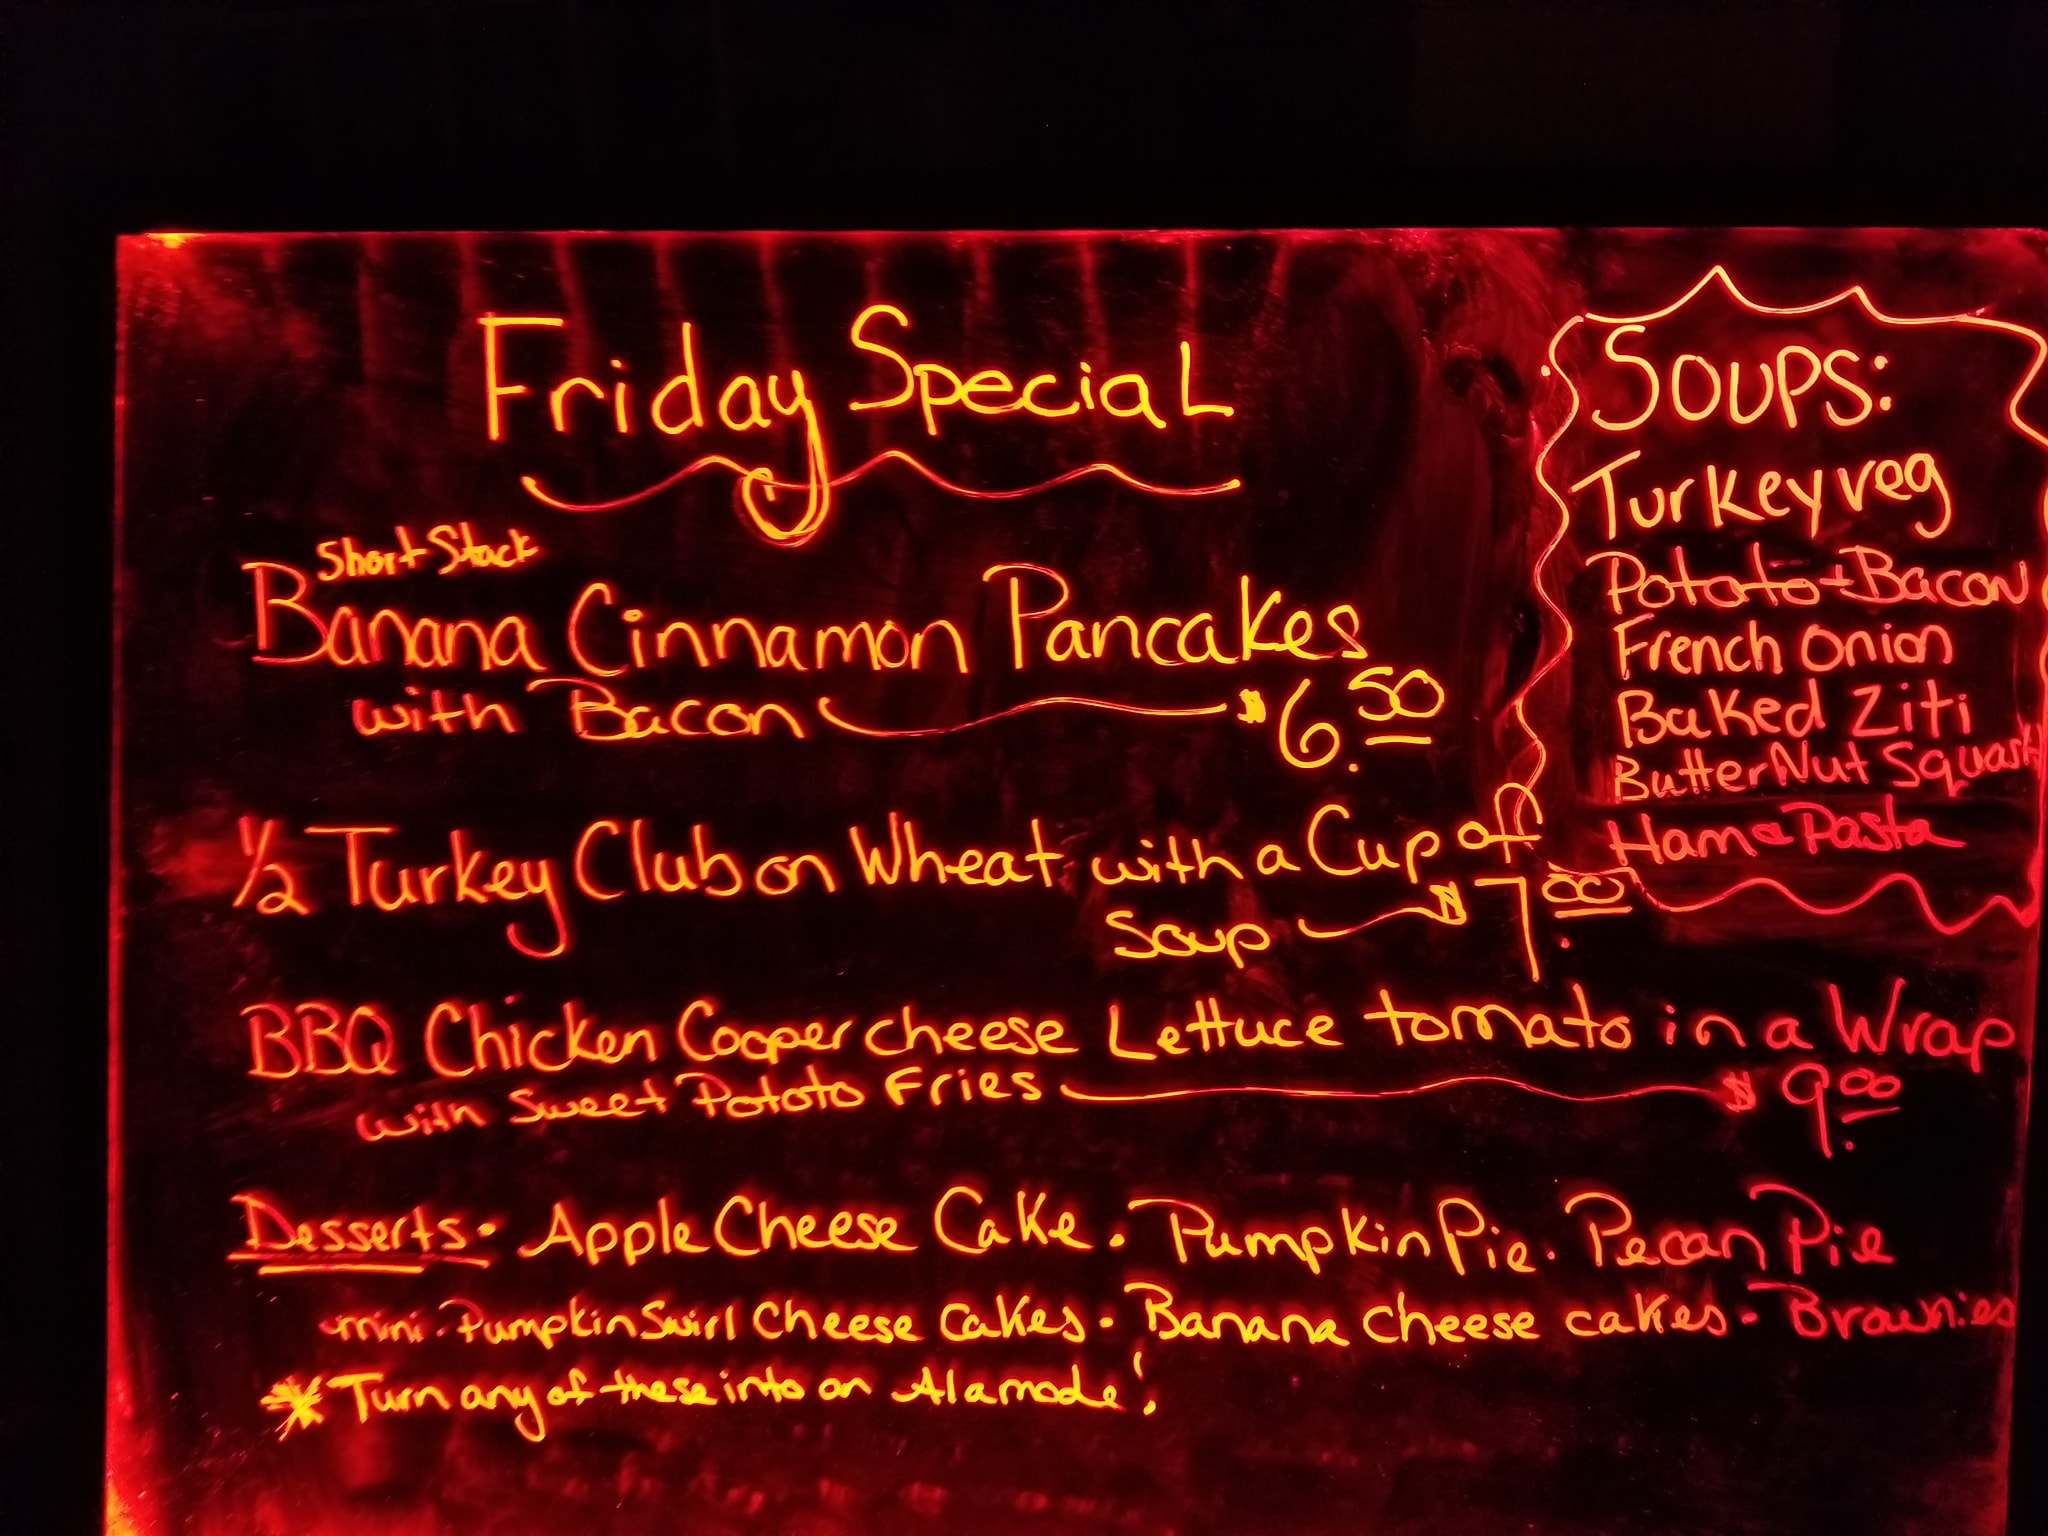 Friday Special
Short Stack
Banana Cinnamon Pancakes
with Bacon $6.50
1/2 Turkey Club on Wheat with a Cup of
Soup $7.00
BBQ Chicken Cooper cheese Lettuce tomato in a Wrap
with Sweet Pototo Fries $9.00
Desserts • Apple Cheese Cake • Pumpkin Pie • Pecan Pie
mini • Pumpkin Swirl Cheese Cakes • Banana Cheese cakes • Brownies
* Turn any of these into an Alamode!
SOUPS:
Turkey veg
Pototo + Bacon
French Onion
Baked Ziti
ButterNut Squash
Ham & Pasta